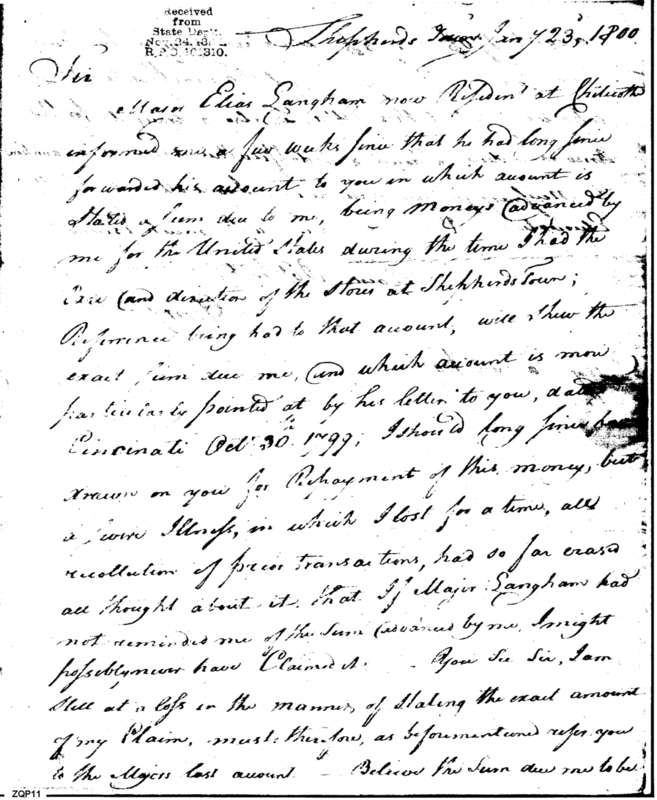 Received
from
State Dept.
Nov. 24, 18
R.P.O. 101310.
Shepherds Town Jan'y 23d, 1800
Sir
Major Elias Langham now Resident at Chilicoth
informed me a few weeks since that he had long since
forwarded his account to you in which account is
Stated a Sum due to me, being moneys advanced by
me for the United States during the time I had the
Care and direction of the Stores at Shepherds Town;
Reference being had to that account, will Shew the
exact Sum due me, and which account is more
particularly pointed at by his letter to you, dated
Cincinati Octr. 30th 1799; I should long since have
drawn on you for Repayment of this money, but
a Severe Illness, in which I lost for a time, all
recollection of prior transactions, had so far erased
all thought about it that If Major Langham had
not reminded me of the Sum advanced by me, I might
possibly never have Claimed it. You See Sir, I am
Still at a loss in the manner of Stating the exact amount
of my Claim, must therefore, as beforementioned refer you
to the Majors last account. Believe the Sum due me to be
ZQP11